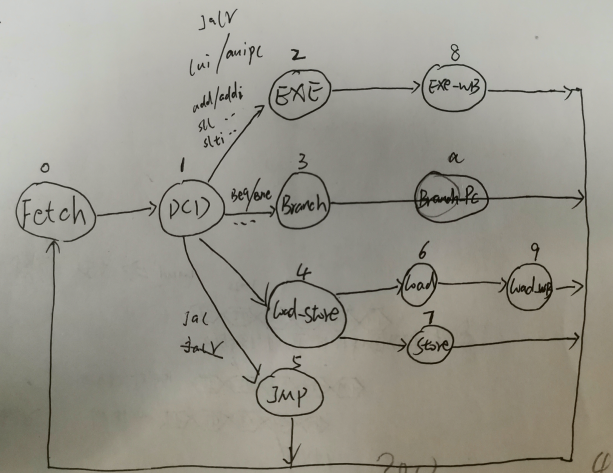 Jalr
lui/auipc
add/addi
sll ...
slti ...
0
Fetch
1
DCD
2
EXE
8
EXE-WB
Beq/Bne
...
3
Branch
a
Branch PC
4
Load-Store
6
Load
9
Load-WB
7
Store
Jal
Jalr
5
JMP